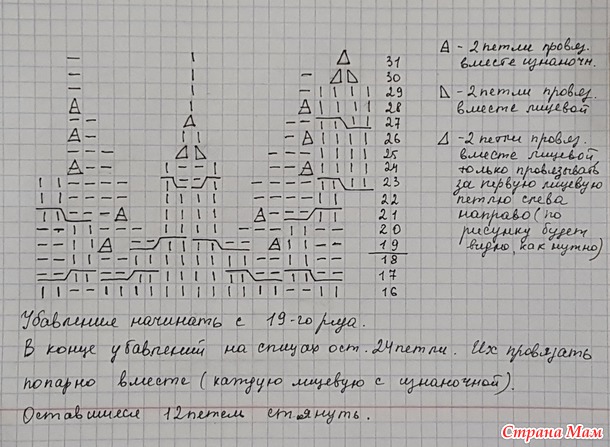 31
30
29
28
27
26
25
24
23
22
21
20
19
18
17
16
- 2 петли провяз.
вместе изнаночн.
- 2 петли провяз.
вместе лицевой
- 2 петли провяз.
вместе лицевой
только провязывать
за первую лицевую
петлю слева
направо (по
рисунку будет
видно, как нужно)
Убавления начинать с 19-го ряда.
В конце убавлений на спицах ост. 24 петли. Их провязать
попарно вместе (каждую лицевую с изнаночной).
Оставшиеся 12 петель стянуть.
Страна Мам